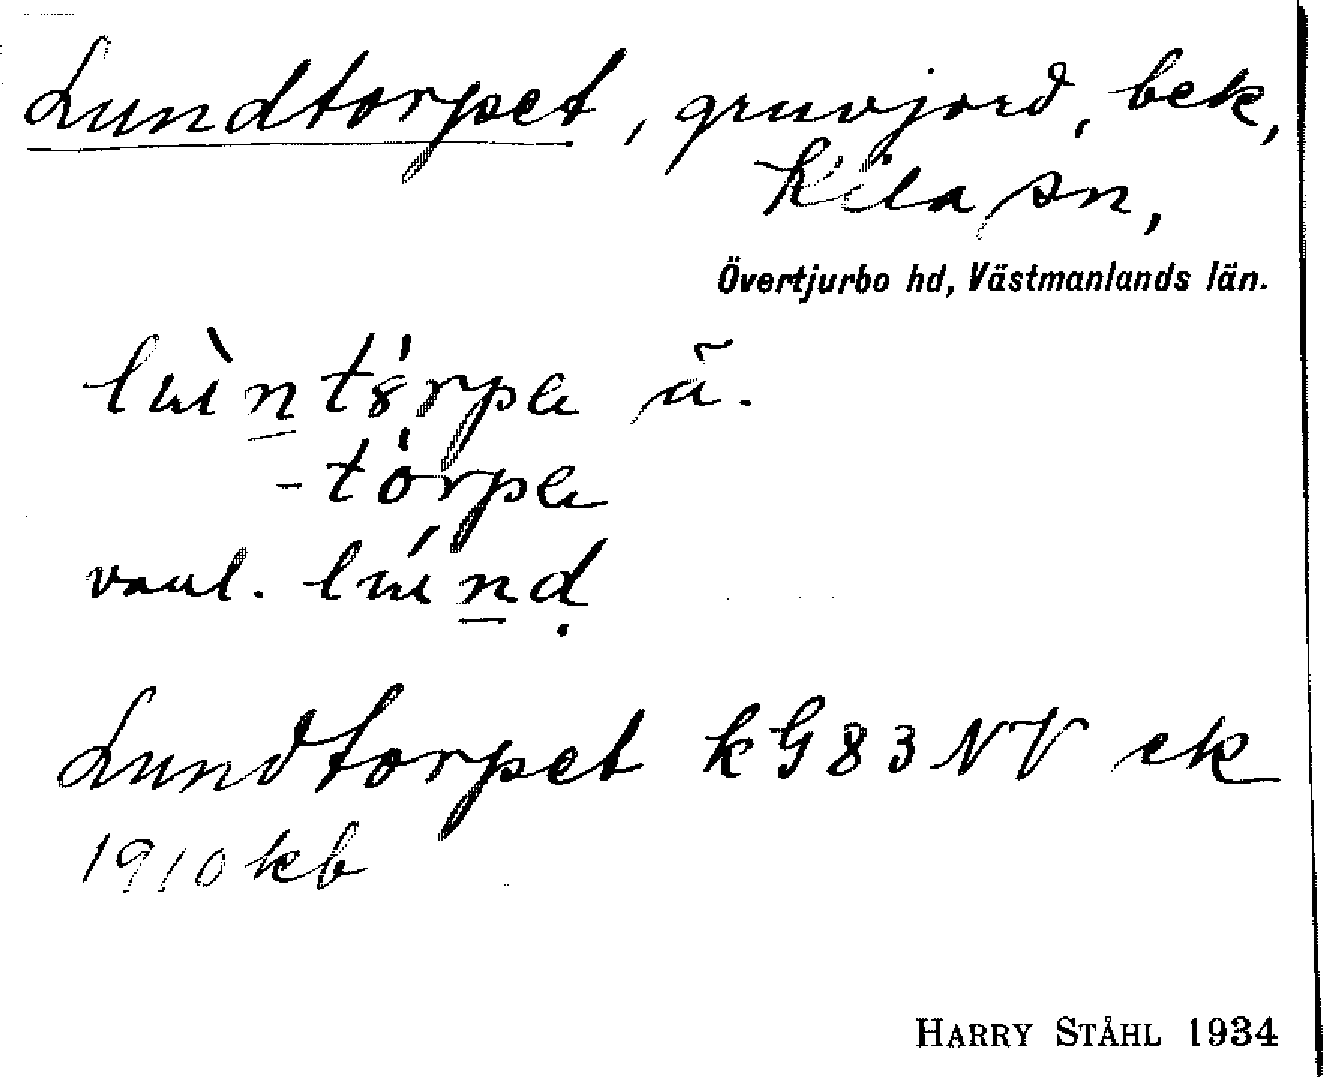 Lundtorpet, gruvjord, bek,
Kila sn,
Övertjurbo hd, Västmanlands län.
lùntórpa ä.
-tórpa
vanl. lúnḍ
Lundtorpet kG83NV ek
1910kb
HARRY STÅHL 1934